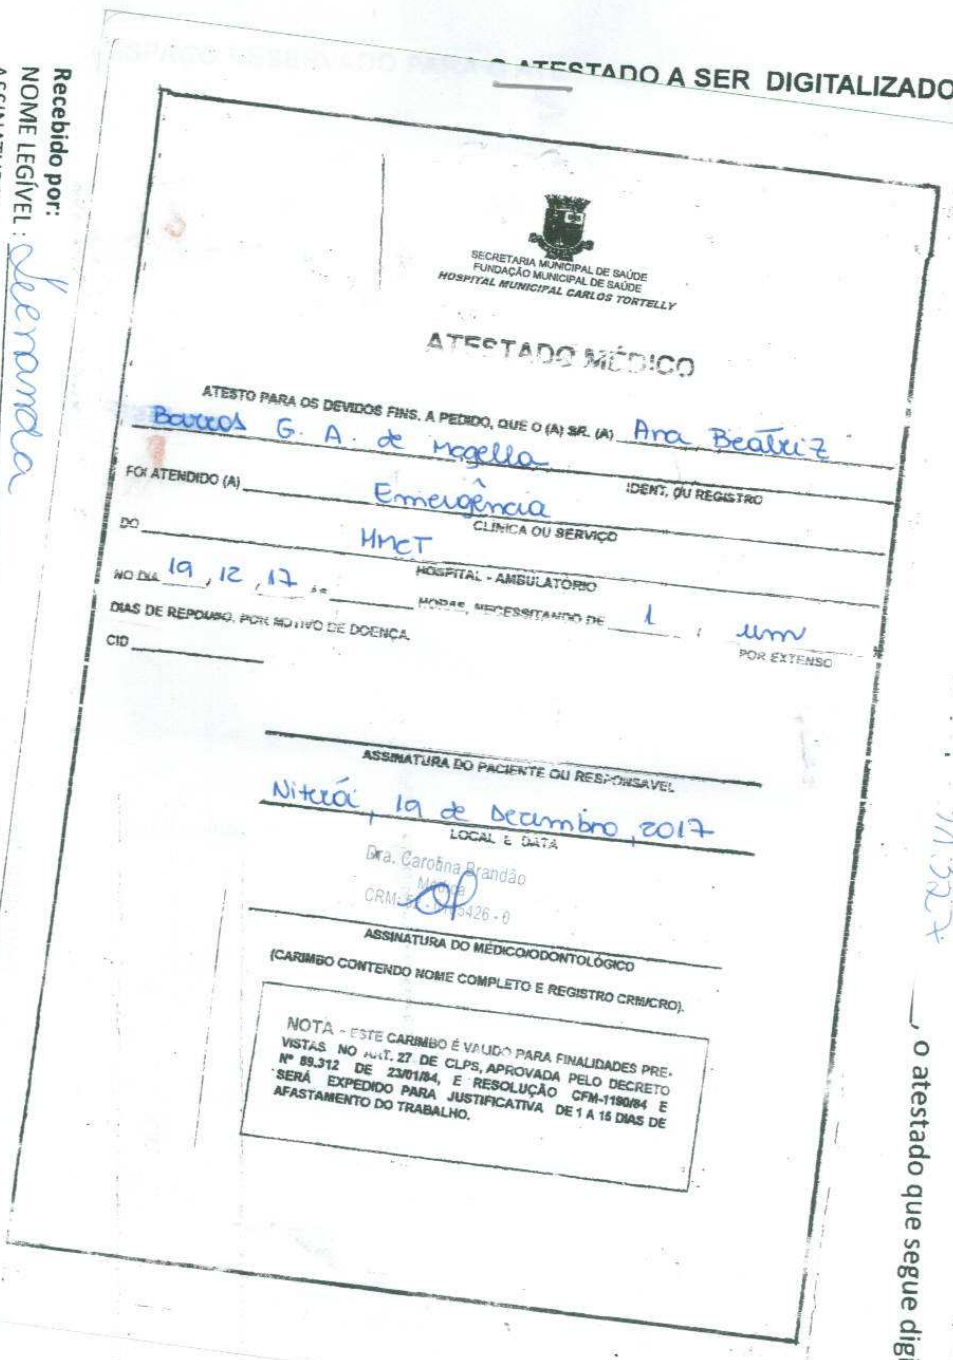 O ATESTADO A SER DIGITALIZADO
Recebido por:
NOME LEGÍVEL :
SECRETARIA MUNICIPAL DE SAÚDE
FUNDAÇÃO MUNICIPAL DE SAÚDE
HOSPITAL MUNICIPAL CARLOS TORTELLY
ATESTADO MÉDICO
ATESTO PARA OS DEVIDOS FINS, A PEDIDO, QUE O (A) SR. (A) Ana Beatriz
Barros G. A. de Magella
IDENT, OU REGISTRO
FOI ATENDIDO (A) Emergência
CLINICA OU SERVIÇO
DO HMCT
HOSPITAL - AMBULATÓRIO
NO DIA 19, 12, 17 ÀS HORAS, NECESSITANDO DE 1 , um
POR EXTENSO
DIAS DE REPOUSO, POR MOTIVO DE DOENÇA.
CID
ASSINATURA DO PACIENTE OU RESPONSAVEL
Niterói, 19 de Dezembro, 2017
LOCAL E DATA
Dra. Carolina Brandão
Médica
CRM: 5426 - 0
ASSINATURA DO MÉDICO/ODONTOLÓGICO
(CARIMBO CONTENDO NOME COMPLETO E REGISTRO CRM/CRO).
NOTA - ESTE CARIMBO É VALIDO PARA FINALIDADES PRE-
VISTAS NO ART. 27 DE CLPS, APROVADA PELO DECRETO
Nº 89.312 DE 23/01/84, E RESOLUÇÃO CFM-1190/84 E
SERÁ EXPEDIDO PARA JUSTIFICATIVA DE 1 A 15 DIAS DE
AFASTAMENTO DO TRABALHO.
, o atestado que segue digi